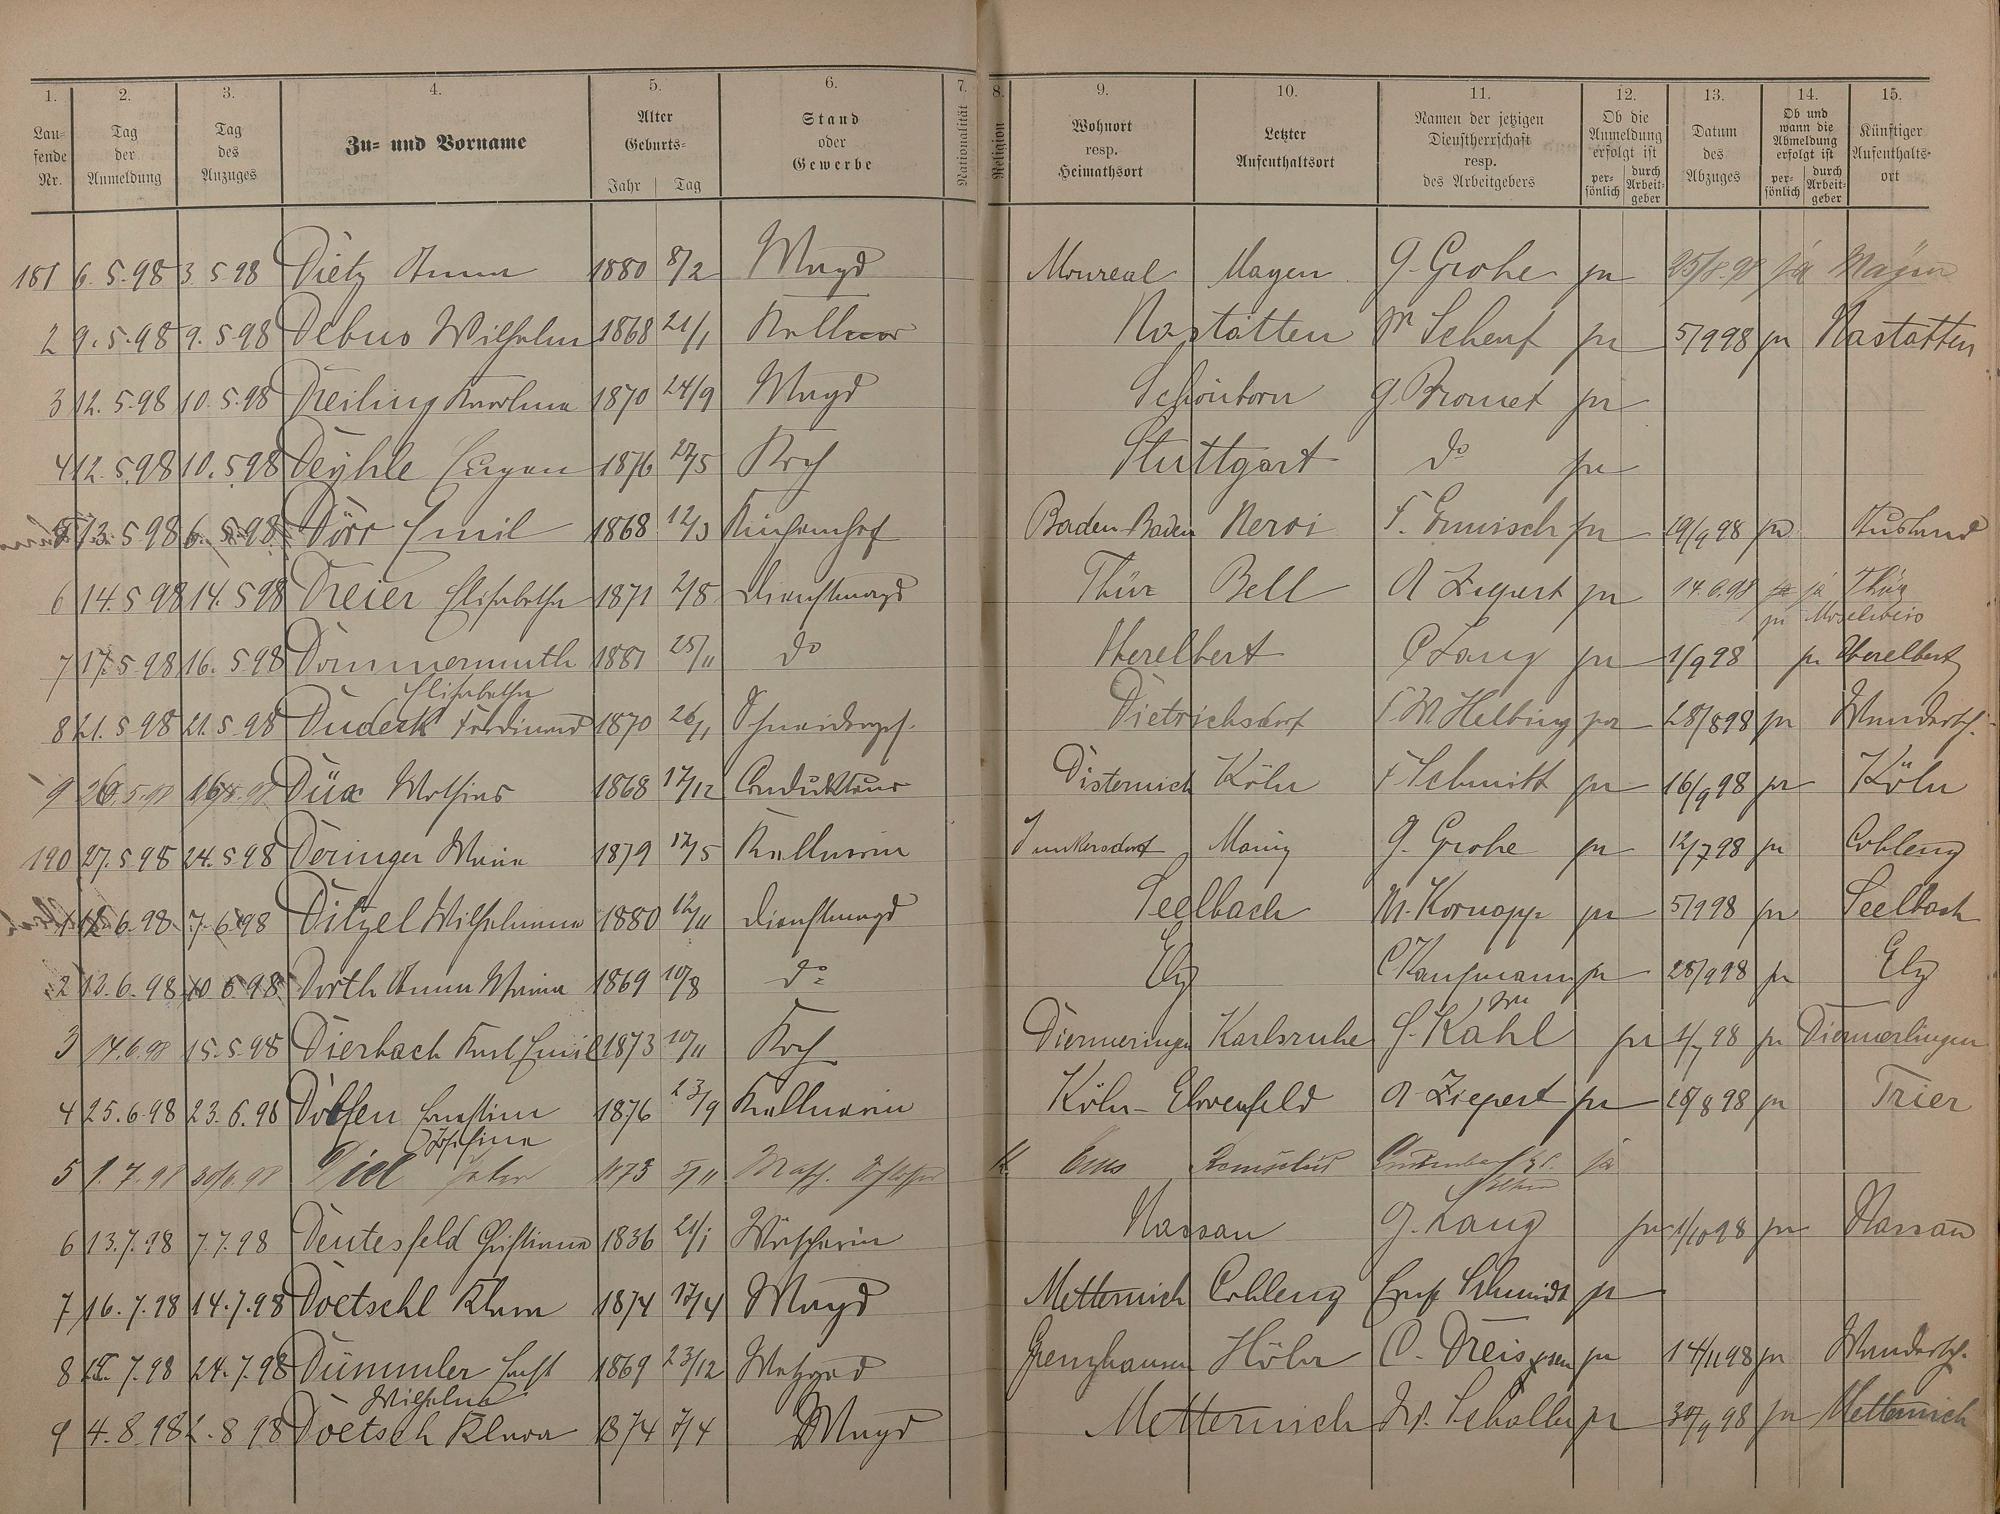 1. 2. 3. 4. 5. 6. 7. 8. 9. 10. 11. 12. 13. 14. 15.
Lau-
fende
Nr.
Tag
der
Anmeldung
Tag
des
Anzuges
Zu- und Vorname
Alter
Geburts-
Jahr Tag
Stand
oder
Gewerbe
Nationalität
Religion
Wohnort
resp.
Heimathsort
Letzter
Aufenthaltsort
Namen der jetzigen
Dienstherrschaft
resp.
des Arbeitgebers
Ob die
Anmeldung
erfolgt ist
per-
sönlich
durch
Arbeit-
geber
Datum
des
Abzuges
Ob und
wann die
Abmeldung
erfolgt ist
per-
sönlich
durch
Arbeit-
geber
Künftiger
Aufenthalts-
ort
181 6.5.98 3.5.98 Dietz Anna 1880 8/2 Magd Monreal Mayen G. Grohe ja 25/8.98 ja Mayen
2 9.5.98 9.5.98 Debus Wilhelm 1868 21/1 Kellner Nastätten M Schenf ja 5/9 98 ja Nastätten
3 12.5.98 10.5.98 Dreiling Karolina 1870 24/9 Magd Schönborn G. Bromet ja
4 12.5.98 10.5.98 Deyhle Eugen 1876 27/5 Koch Stuttgart do ja
5 13.5.98 6.5.98 Dörr Emil 1868 12/3 Küchenchef Baden-Baden Nervi F. Ermisch ja 19/9 98 ja Ausland
6 14.5 98 14.5 98 Dreier Elisabetha 1871 2/8 Dienstmagd Thür Bell A Ziepert ja 14.6.98 ja Thür
ja Moselweis
7 17.5 98 16.5 98 Dommermuth 1881 25/11 do Oberelbert C Lang ja 1/9 98 ja Oberelbert
Elisabetha
8 21.5 98 21.5 98 Dudeck Ferdinand 1870 26/1 Schneidergef. Dietrichsdorf F. W. Helbing ja 28/8 98 ja Wandersch.
9 26.5.98 16.5.98 Düx Mathias 1868 17/12 Condukteur Disternich Köln F Schmitt ja 16/9 98 ja Köln
190 27.5 98 24.5 98 Deringer Maria 1879 12/5 Kellnerin Junkersdorf Mainz G. Grohe ja 12/7 98 ja Coblenz
1 12.6.98 7.6 98 Ditzel Wilhelmina 1880 12/11 Dienstmagd Seelbach M. Kornapp ja 5/9 98 ja Seelbach
2 13.6.98 10 6 98 Dorth Anna Maria 1869 10/8 do Elz C Kaufmann ja 28/9 98 ja Elz
3 14.6.98 15.5.98 Dierbach Karl Emil 1873 10/11 Koch Diermeringen Karlsruhe G. Kahl ja 1/7 98 ja Diemerlingen
4 25.6.98 23.6.98 Dölfen Ernestine 1876 23/9 Kellnerin Köln-Ehrenfeld A Ziepert ja 18/8 98 ja Trier
Josefina
5 1.7.98 30/6.98 Diel 1873 5/11 Masch. Schlosser K. Ems Remscheid ja
6 13.7.98 7.7.98 Deutesfeld Christiana 1836 21/1 Wäscherin Nassau G. Lang ja 1/10 98 ja Nassau
7 16.7.98 14.7.98 Doetschl Klara 1874 17/4 Magd Metternich Coblenz Ernst Schmidt ja
8 28.7.98 24.7.98 Dümmler Ernst 1869 23/12 Metzger Grenzhausen Höhr C. Dreis ja 14/11 98 ja Wandersch.
Wilhelm
9 4.8.98 2.8 98 Doetsch Klara 1874 7/4 Magd Metternich Scholler ja 30/9 98 ja Metternich